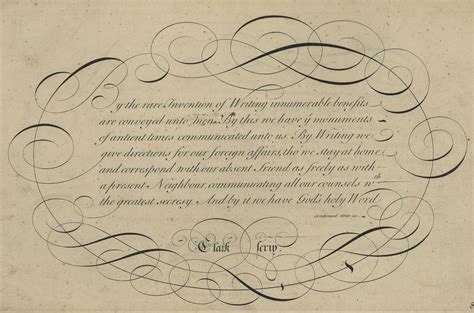 By the rare Invention of Writing innumerable benefits
are conveyed unto Men. By this we have ẙ monuments
of antient times communicated unto us. By Writing we
give directions for our foreign affairs, tho we stay at home
and correspond with our absent Friend as freely as with
a present Neighbour, communicating all our counsels wth
the greatest secresy. And by it we have God's holy Word
Clark scrip.